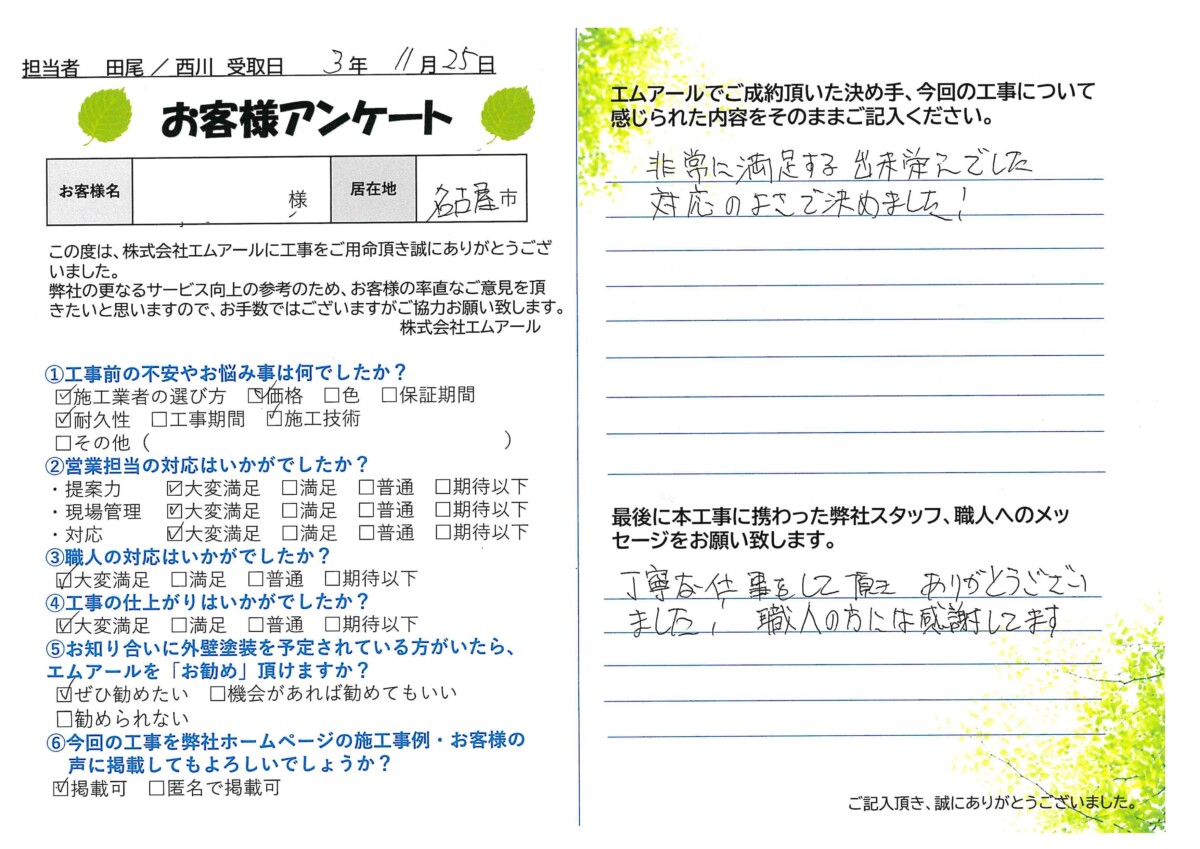 担当者 田尾／西川 受取日 3年 11月25日
お客様アンケート
お客様名 様 居在地 名古屋市
この度は、株式会社エムアールに工事をご用命頂き誠にありがとうござ
いました。
弊社の更なるサービス向上の参考のため、お客様の率直なご意見を頂
きたいと思いますので、お手数ではございますがご協力お願い致します。
株式会社エムアール
①工事前の不安やお悩み事は何でしたか？
☑施工業者の選び方 ☑価格 □色 □保証期間
☑耐久性 □工事期間 ☑施工技術
□その他（ ）
②営業担当の対応はいかがでしたか？
・提案力 ☑大変満足 □満足 □普通 □期待以下
・現場管理 ☑大変満足 □満足 □普通 □期待以下
・対応 ☑大変満足 □満足 □普通 □期待以下
③職人の対応はいかがでしたか？
☑大変満足 □満足 □普通 □期待以下
④工事の仕上がりはいかがでしたか？
☑大変満足 □満足 □普通 □期待以下
⑤お知り合いに外壁塗装を予定されている方がいたら、
エムアールを「お勧め」頂けますか？
☑ぜひ勧めたい □機会があれば勧めてもいい
□勧められない
⑥今回の工事を弊社ホームページの施工事例・お客様の
声に掲載してもよろしいでしょうか？
☑掲載可 □匿名で掲載可
エムアールでご成約頂いた決め手、今回の工事について
感じられた内容をそのままご記入ください。
非常に満足する出来栄えでした
対応のよさで決めました！
最後に本工事に携わった弊社スタッフ、職人へのメッ
セージをお願い致します。
丁寧な仕事をして頂き ありがとうござい
ました！ 職人の方には感謝してます
ご記入頂き、誠にありがとうございました。